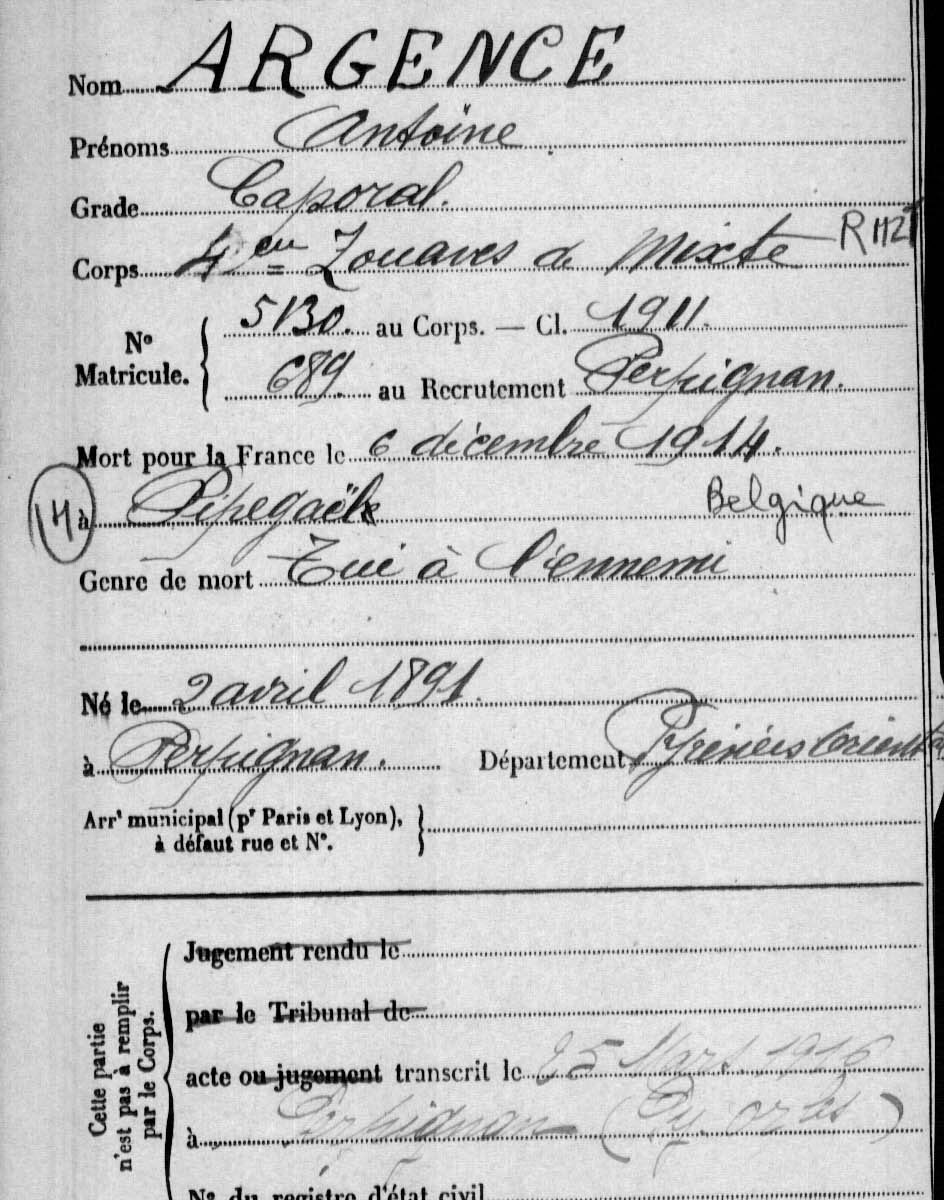 Nom ARGENCE
Prénoms Antoine
Grade Caporal.
Corps 4eme Zouaves de Mixte
N° Matricule. 5130. au Corps. — Cl. 1911.
689. au Recrutement Perpignan.
Mort pour la France le 6 décembre 1914.
14 à Pipegaële Belgique
Genre de mort Tué à l'ennemi
Né le 2 avril 1891.
à Perpignan. Département Pyrénées Orient
Arrt municipal (pr Paris et Lyon),
à défaut rue et N°.
Cette partie
n'est pas à remplir
par le Corps.
Jugement rendu le
par le Tribunal de
acte ou jugement transcrit le 25 Mars 1916
à Perpignan (Py. Orles)
N° du registre d'état civil